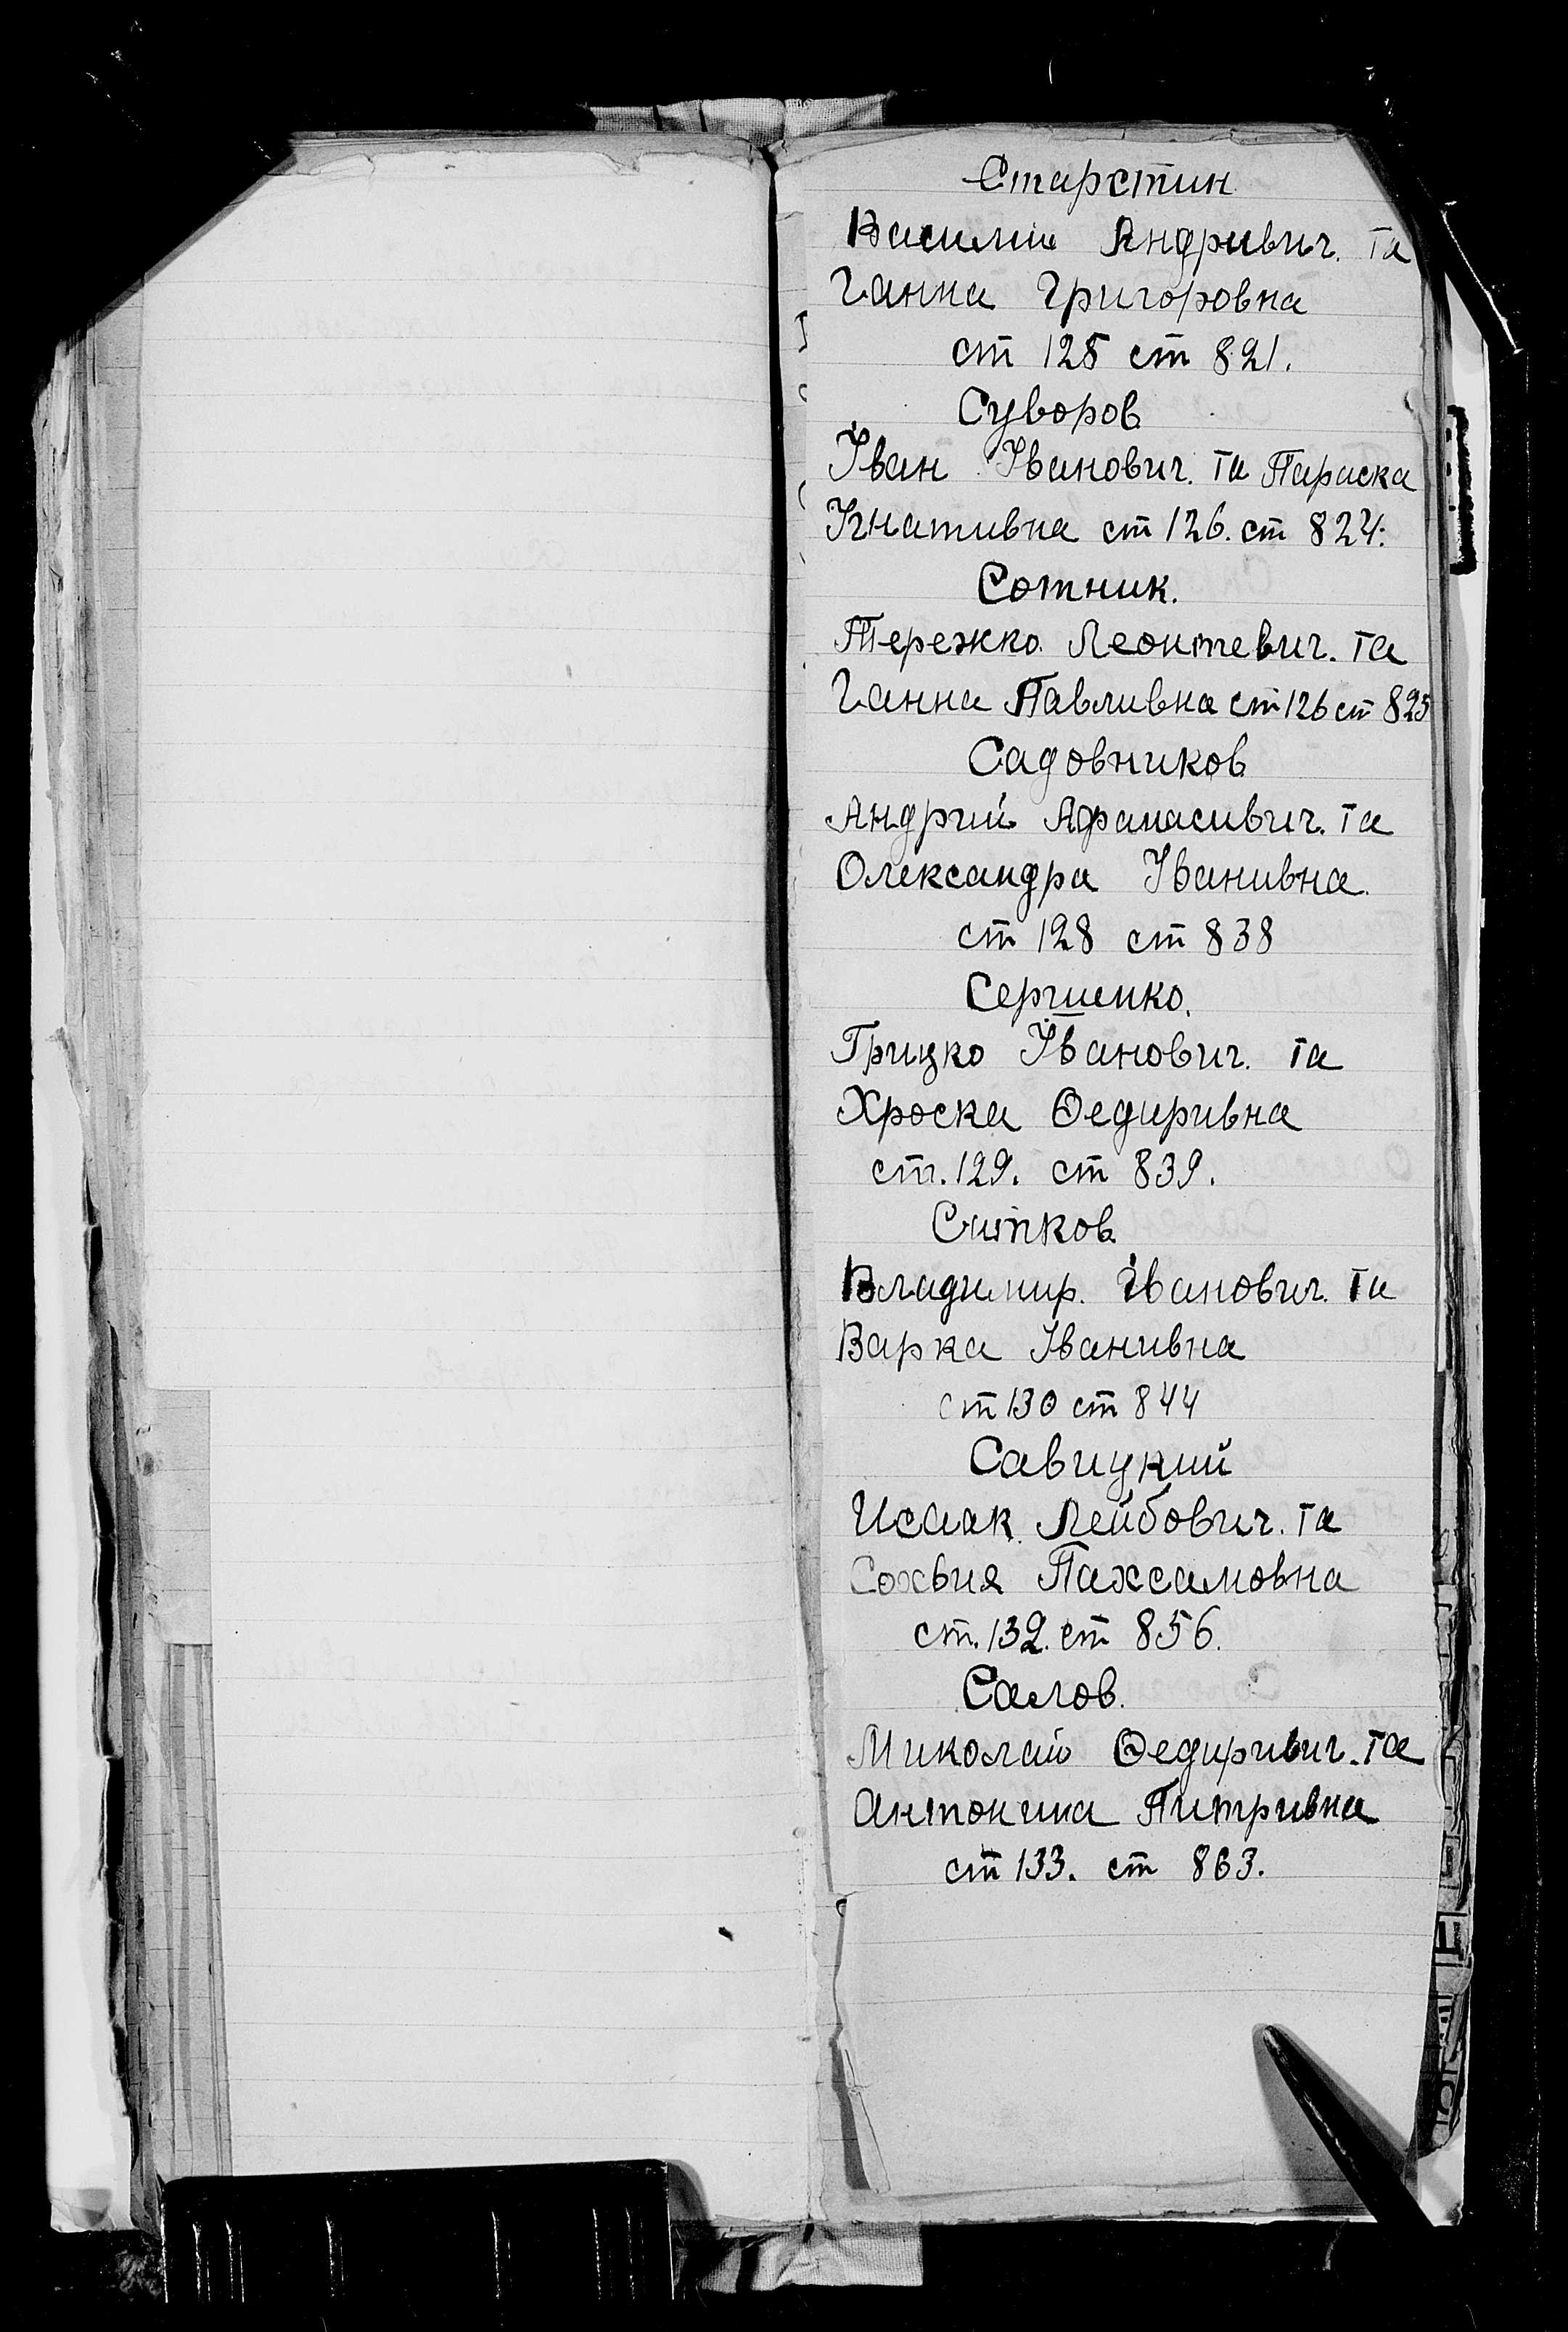 Старстин
Василий Андривич. та
Ганна Григоровна
ст 125 ст 821.
Суворов
Іван Іванович. та Параска
Ігнативна ст 126. ст 824.
Сотник.
Тережко Леонтевич. та
Ганна Павливна ст 126 ст 825
Садовников
Андрий Афанасивич. та
Олександра Іванивна
ст 128 ст 838
Сергиенко.
Грицко Іванович. та
Хроска Федиривна
ст. 129. ст 839.
Ситков
Владимир. Іванович. та
Варка Іванивна
ст 130 ст 844
Савицкий
Исаак Лейбович. та
Сохвия Пахсамовна
ст. 132. ст 856.
Салов.
Миколай Федиривич. та
Антонина Питривна
ст 133. ст 863.